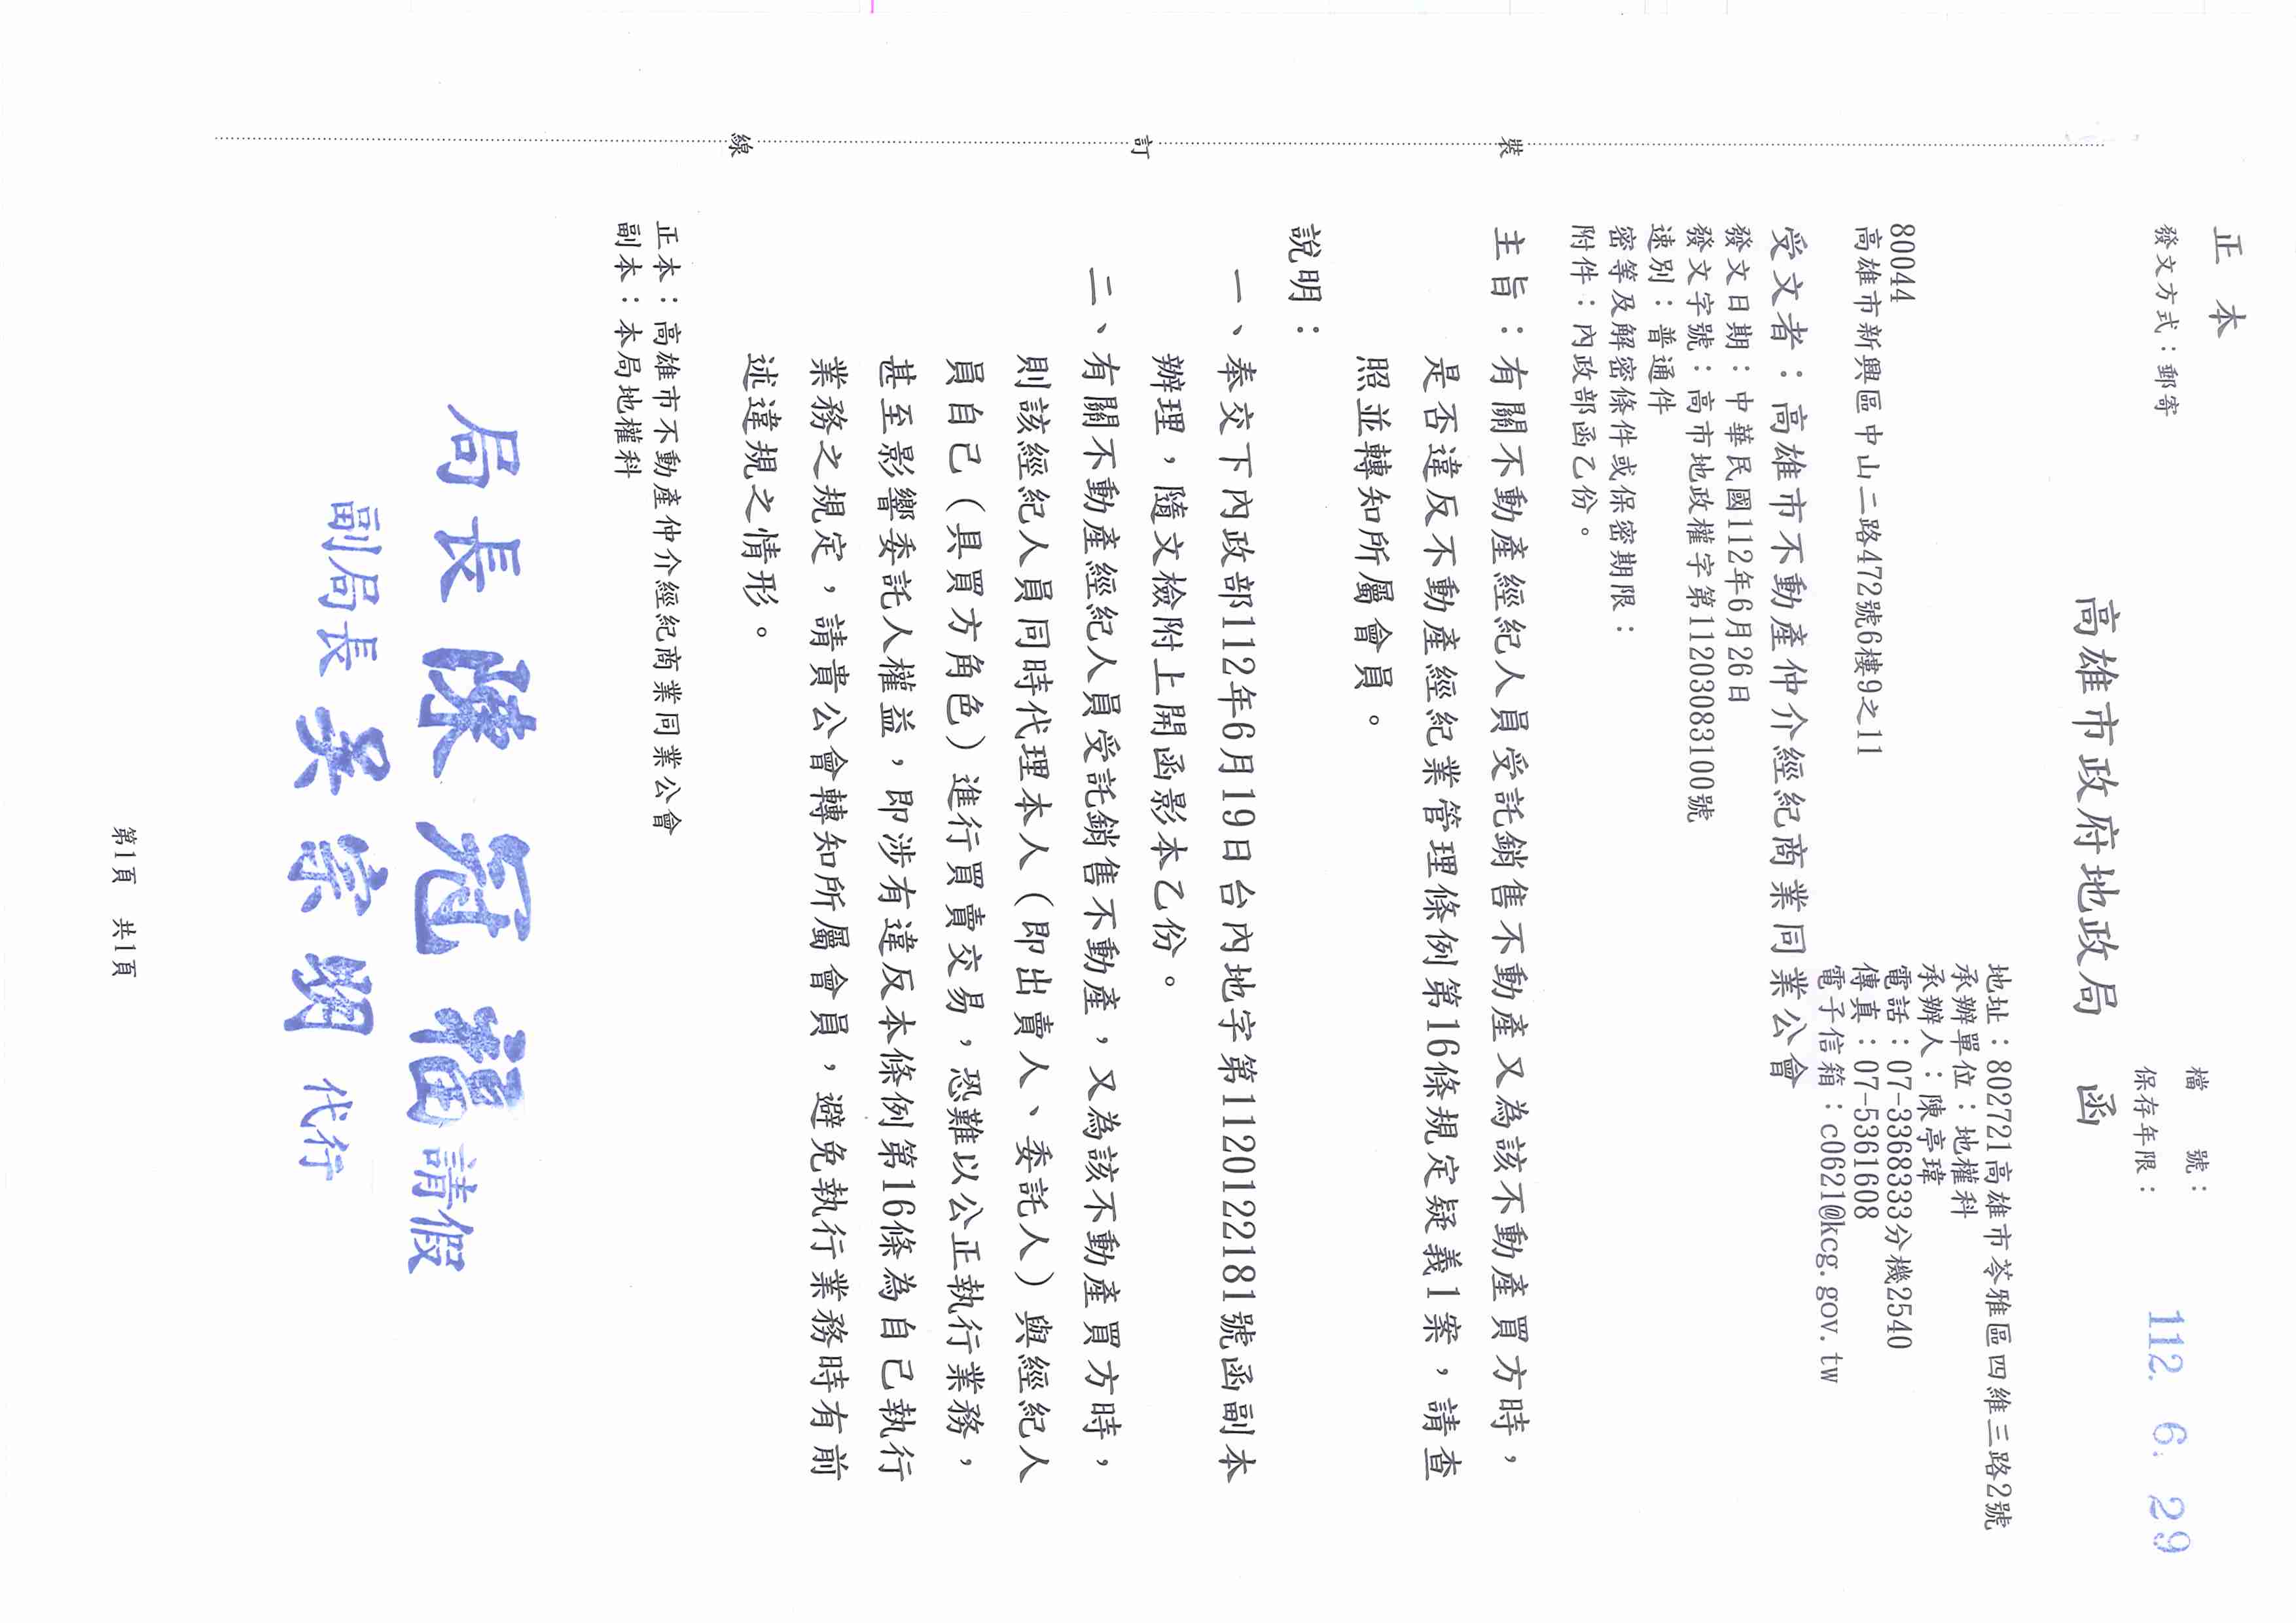 正本
發文方式：郵寄
檔　　號：
保存年限：
112. 6. 29
高雄市政府地政局　函
地址：802721高雄市苓雅區四維三路2號
承辦單位：地權科
承辦人：陳亭瑋
電話：07-3368333分機2540
傳真：07-5361608
電子信箱：c0621@kcg.gov.tw
80044
高雄市新興區中山二路472號6樓9之11
受文者：高雄市不動產仲介經紀商業同業公會
發文日期：中華民國112年6月26日
發文字號：高市地政權字第11203083100號
速別：普通件
密等及解密條件或保密期限：
附件：內政部函乙份。
主旨：有關不動產經紀人員受託銷售不動產又為該不動產買方時，
是否違反不動產經紀業管理條例第16條規定疑義1案，請查
照並轉知所屬會員。
說明：
一、奉交下內政部112年6月19日台內地字第1120122181號函副本
辦理，隨文檢附上開函影本乙份。
二、有關不動產經紀人員受託銷售不動產，又為該不動產買方時，
則該經紀人員同時代理本人（即出賣人、委託人）與經紀人
員自己（具買方角色）進行買賣交易，恐難以公正執行業務，
甚至影響委託人權益，即涉有違反本條例第16條為自己執行
業務之規定，請貴公會轉知所屬會員，避免執行業務時有前
述違規之情形。
正本：高雄市不動產仲介經紀商業同業公會
副本：本局地權科
局長 陳冠福 請假
副局長 吳宗明 代行
裝
訂
線
第1頁　共1頁